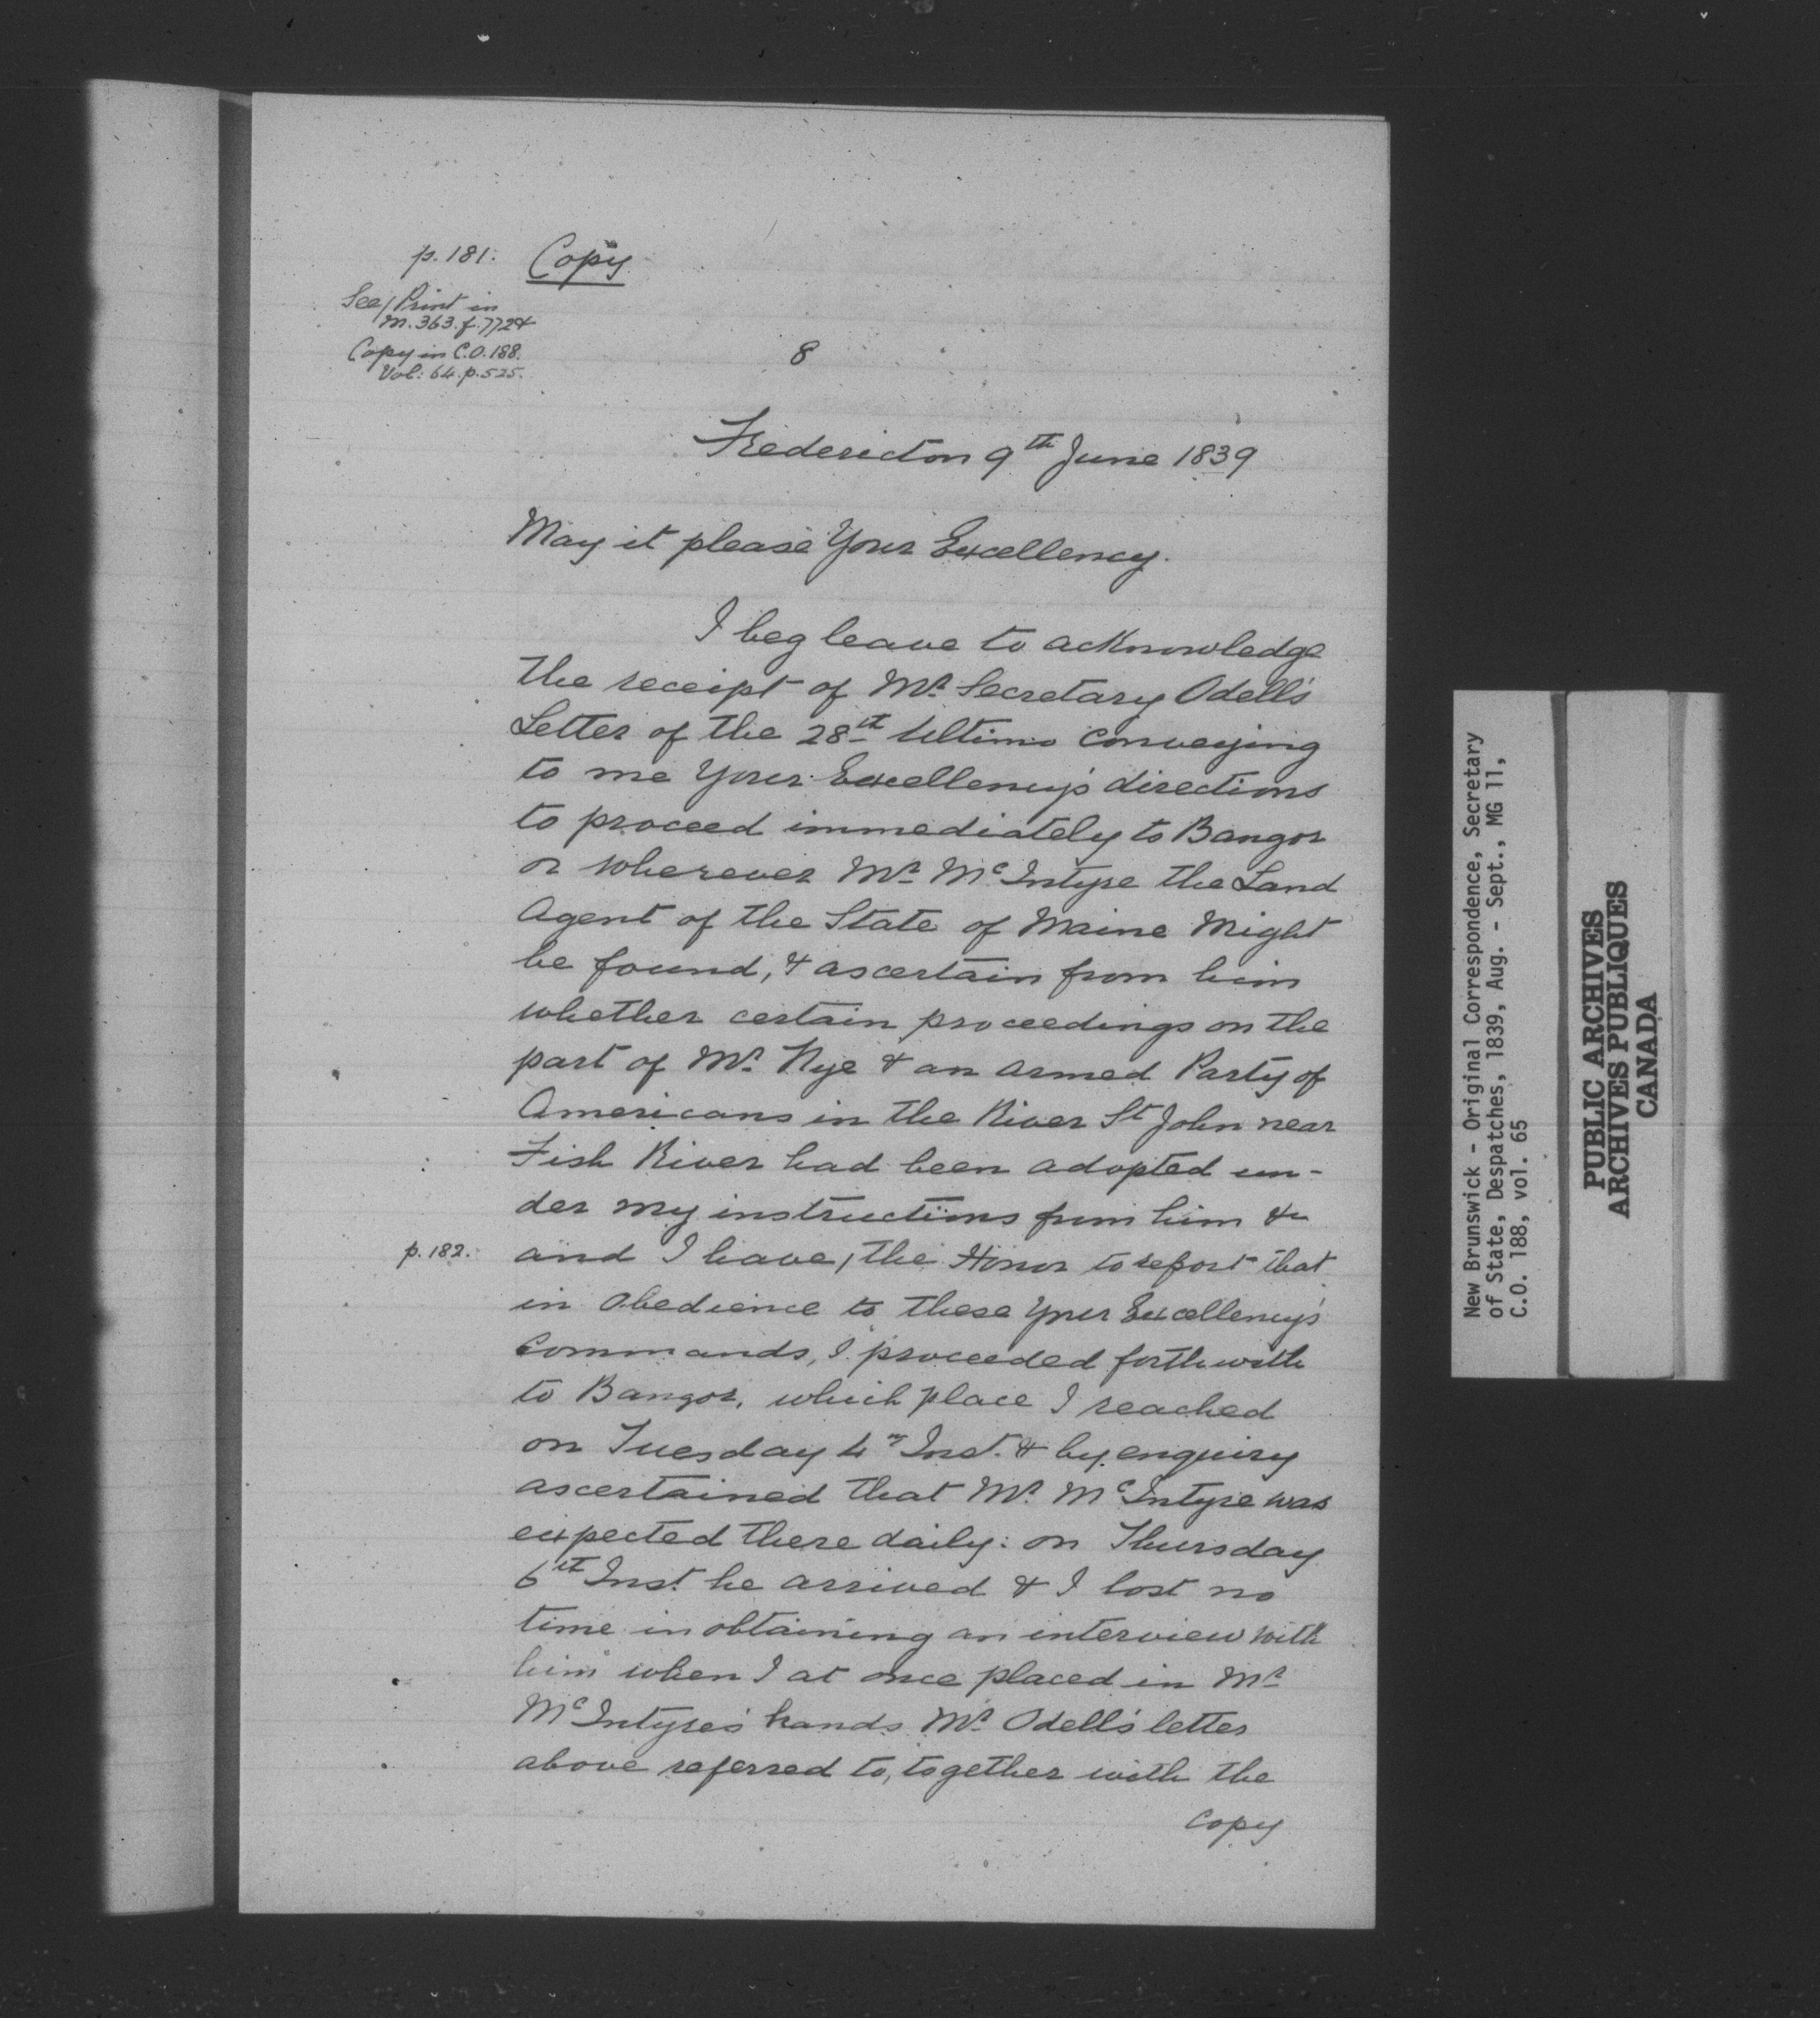 p. 181.
Copy
See/Print in
m. 363. f. 772 &
Copy in C.O. 188.
Vol: 64. p. 525.
8
Fredericton 9th June 1839
May it please Your Excellency.
I beg leave to acknowledge
the receipt of Mr. Secretary Odell's
Letter of the 28th Ultimo conveying
to me Your Excellency's directions
to proceed immediately to Bangor
or wherever Mr. McIntyre the Land
Agent of the State of Maine Might
be found, & ascertain from him
whether certain proceedings on the
part of Mr. Nye & an armed Party of
Americans in the River St John near
Fish River had been adopted un-
der my instructions from him &c
p. 182.
and I have, the Honor to report that
in obedience to these Your Excellency's
Commands, I proceeded forthwith
to Bangor, which place I reached
on Tuesday 4th Inst. & by enquiry
ascertained that Mr. McIntyre was
expected there daily: on Thursday
6th Inst. he arrived & I lost no
time in obtaining an interview with
him when I at once placed in Mr.
McIntyre's hands Mr. Odell's letter
above referred to, together with the
Copy
New Brunswick - Original Correspondence, Secretary
of State, Despatches, 1839, Aug. - Sept., MG 11,
C.O. 188, vol. 65
PUBLIC ARCHIVES
ARCHIVES PUBLIQUES
CANADA